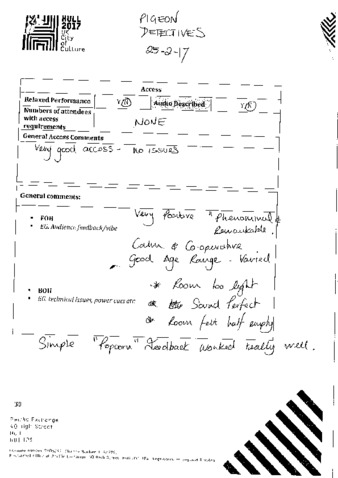 HULL
2017
UK
City
of
Culture
PIGEON
DETECTIVES
25-2-17
Access
Relaxed Performance Y/N Audio Described Y/N
Numbers of attendees
with access
requirements NONE
General Access Comments
Very good access - no issues
General comments:
Very Positive "Phenominal &
Remarkable.
• FOH
• EG. Audience feedback/vibe
Calm & Co-operative
Good Age Range - Varied
* Room too light
• BOH
• EG. technical issues, power cuts etc
* Sound Perfect
* Room felt half empty
Simple "Popcorn" Feedback worked really well.
Pacific Exchange
40 High Street
Hull